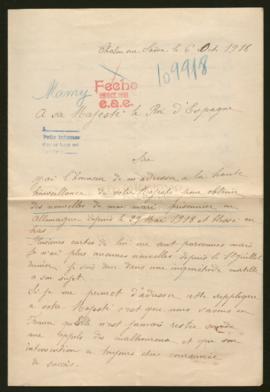 Chalon sur Saône le 6 Oct. 1918
Fecho
e.a.e.
109918
Mamy
A sa Majesté le Roi d'Espagne
Sire
j'ai l'honneur de m'adresser a la haute
bienveillance de votre Majesté pour obtenir
des nouvelles de mon mari prisonnier en
Allemagne depuis le 29 Mai 1918 et blessé en
bas
Plusieurs cartes de lui me sont parvenues mais
je n'ai plus aucunes nouvelles depuis le Juillet
dernier, je suis donc dans une inquiétude mortelle
a son sujet.
Si je me permet d'adresser cette supplique
a votre Majesté c'est que nous savons en
France qu'Elle n'est jamais restée sourde
aux appels des malheureux et que son
intervention a toujours étée couronnée
de succès.